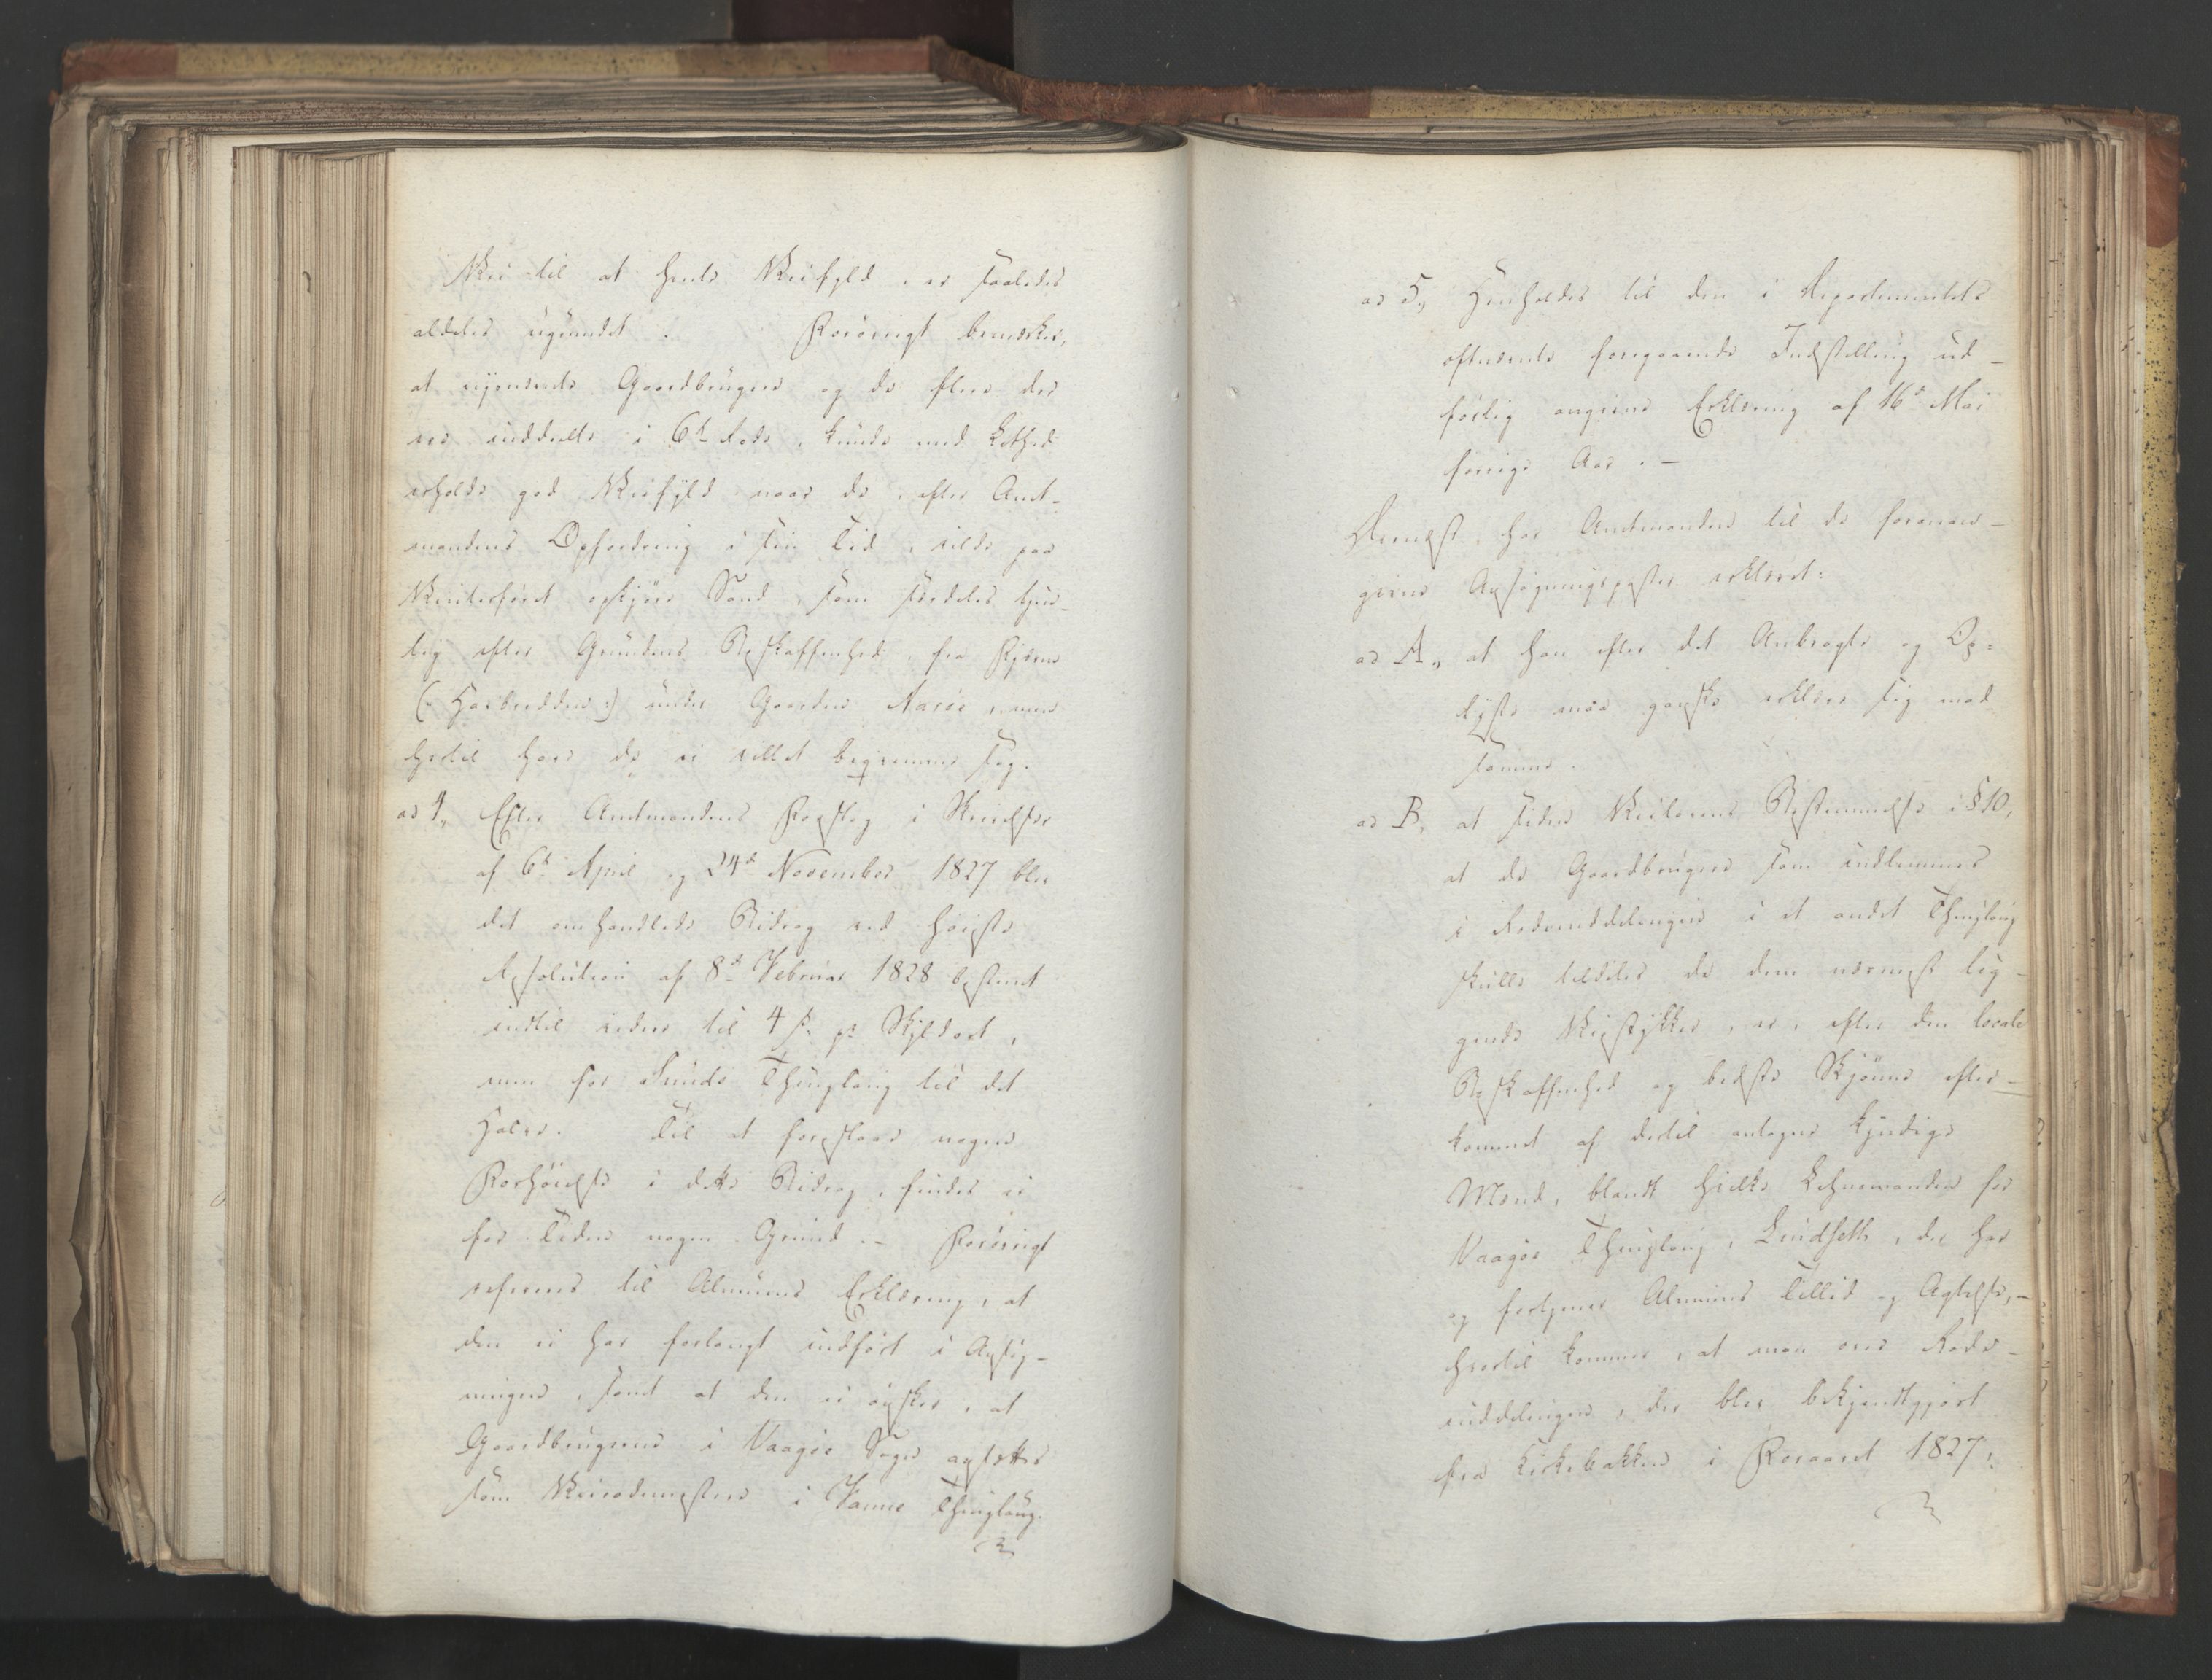 Vei til at hente Veifyld, er saaledes
aldeles ugrundet. Forøvrigt bemærkes,
at nysnævnte Gaardbrugere og de flere der
ere inddeelte i 6te Rode, kunde med Lethed
erholde god Veifyld naar de, efter Amt-
mandens Opfordring i sin Tid, vilde paa
Vinterføret opkjøre Sand, som særdeles tjen-
lig efter Grundens Beskaffenhed, fra Fjæren
(: Havbredden :) under Gaarden Narøe, men
hertil have de ei villet beqvemme sig.
ad 4, Efter Amtmandens Forslag i Skrivelser
af 6te April og 24de November 1827 blev
det omhandlede Bidrag ved høieste
Resolution af 8de Februar 1828 bestemt
indtil videre til 4 s. pr Skyldort,
men for Sunde Thinglaug til det
Halve. Til at foreslaae nogen
Forhøielse i dette Bidrag, findes ei
for Tiden nogen Grund.- Forøvrigt
refereres til Almuens Erklæring, at
den ei har forlangt indført i Ansøg-
ningen, samt at den ei ønsker, at
Gaardbrugerne i Vaagøe Sogn ansættes
som Veirodemestere i Thinglaug.
ad 5, Henholdes til den i Departementets
oftnævnte foregaaende Indstilling ud-
førlig angivne Erklæring af 16de Mai
forrige Aar.-
Dernæst har Amtmanden til de foranan-
givne Ansøgningsposter erklæret:
ad A, at han efter det Anbragte og Op-
lyste maa ganske erklære sig mod
samme.
ad B, at siden Veilovens Bestemmelse i § 10,
at de Gaardbrugere som indlemmes
i Rodeinddelingen i et andet Thinglaug
skulle tildeles de dem nærmest lig-
gende Veistykker, er, efter den locale
Beskaffenhed og bedste Skjønne efter-
kommet af dertil antagne kyndige
Mænd, blandt hvilke Lehnsmanden for
Vaagøe Thinglaug, Lindseth, der har
og fortjener Almuens Tillid og Agtelse,-
hvortil kommer, at man over Rode-
inddelingen, der blev bekjendtgjort
fra Kirkebakken i Foraaret 1827,